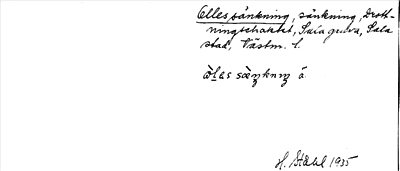 Ellessänkning, sänkning, Drott-
ningschaktet, Sala gruva, Sala
stad, Västm. l.
H. Ståhl 1935